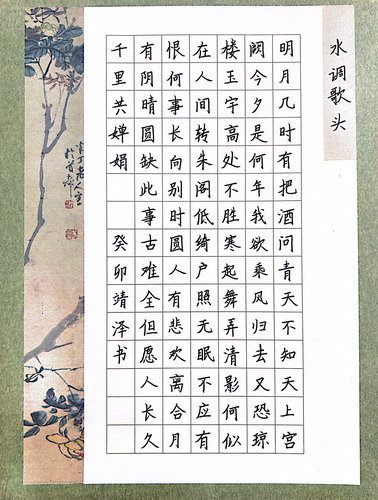 水调歌头
明月几时有把酒问青天不知天上宫
阙今夕是何年我欲乘风归去又恐琼
楼玉宇高处不胜寒起舞弄清影何似
在人间转朱阁低绮户照无眠不应有
恨何事长向别时圆人有悲欢离合月
有阴晴圆缺此事古难全但愿人长久
千里共婵娟 癸卯靖泽书